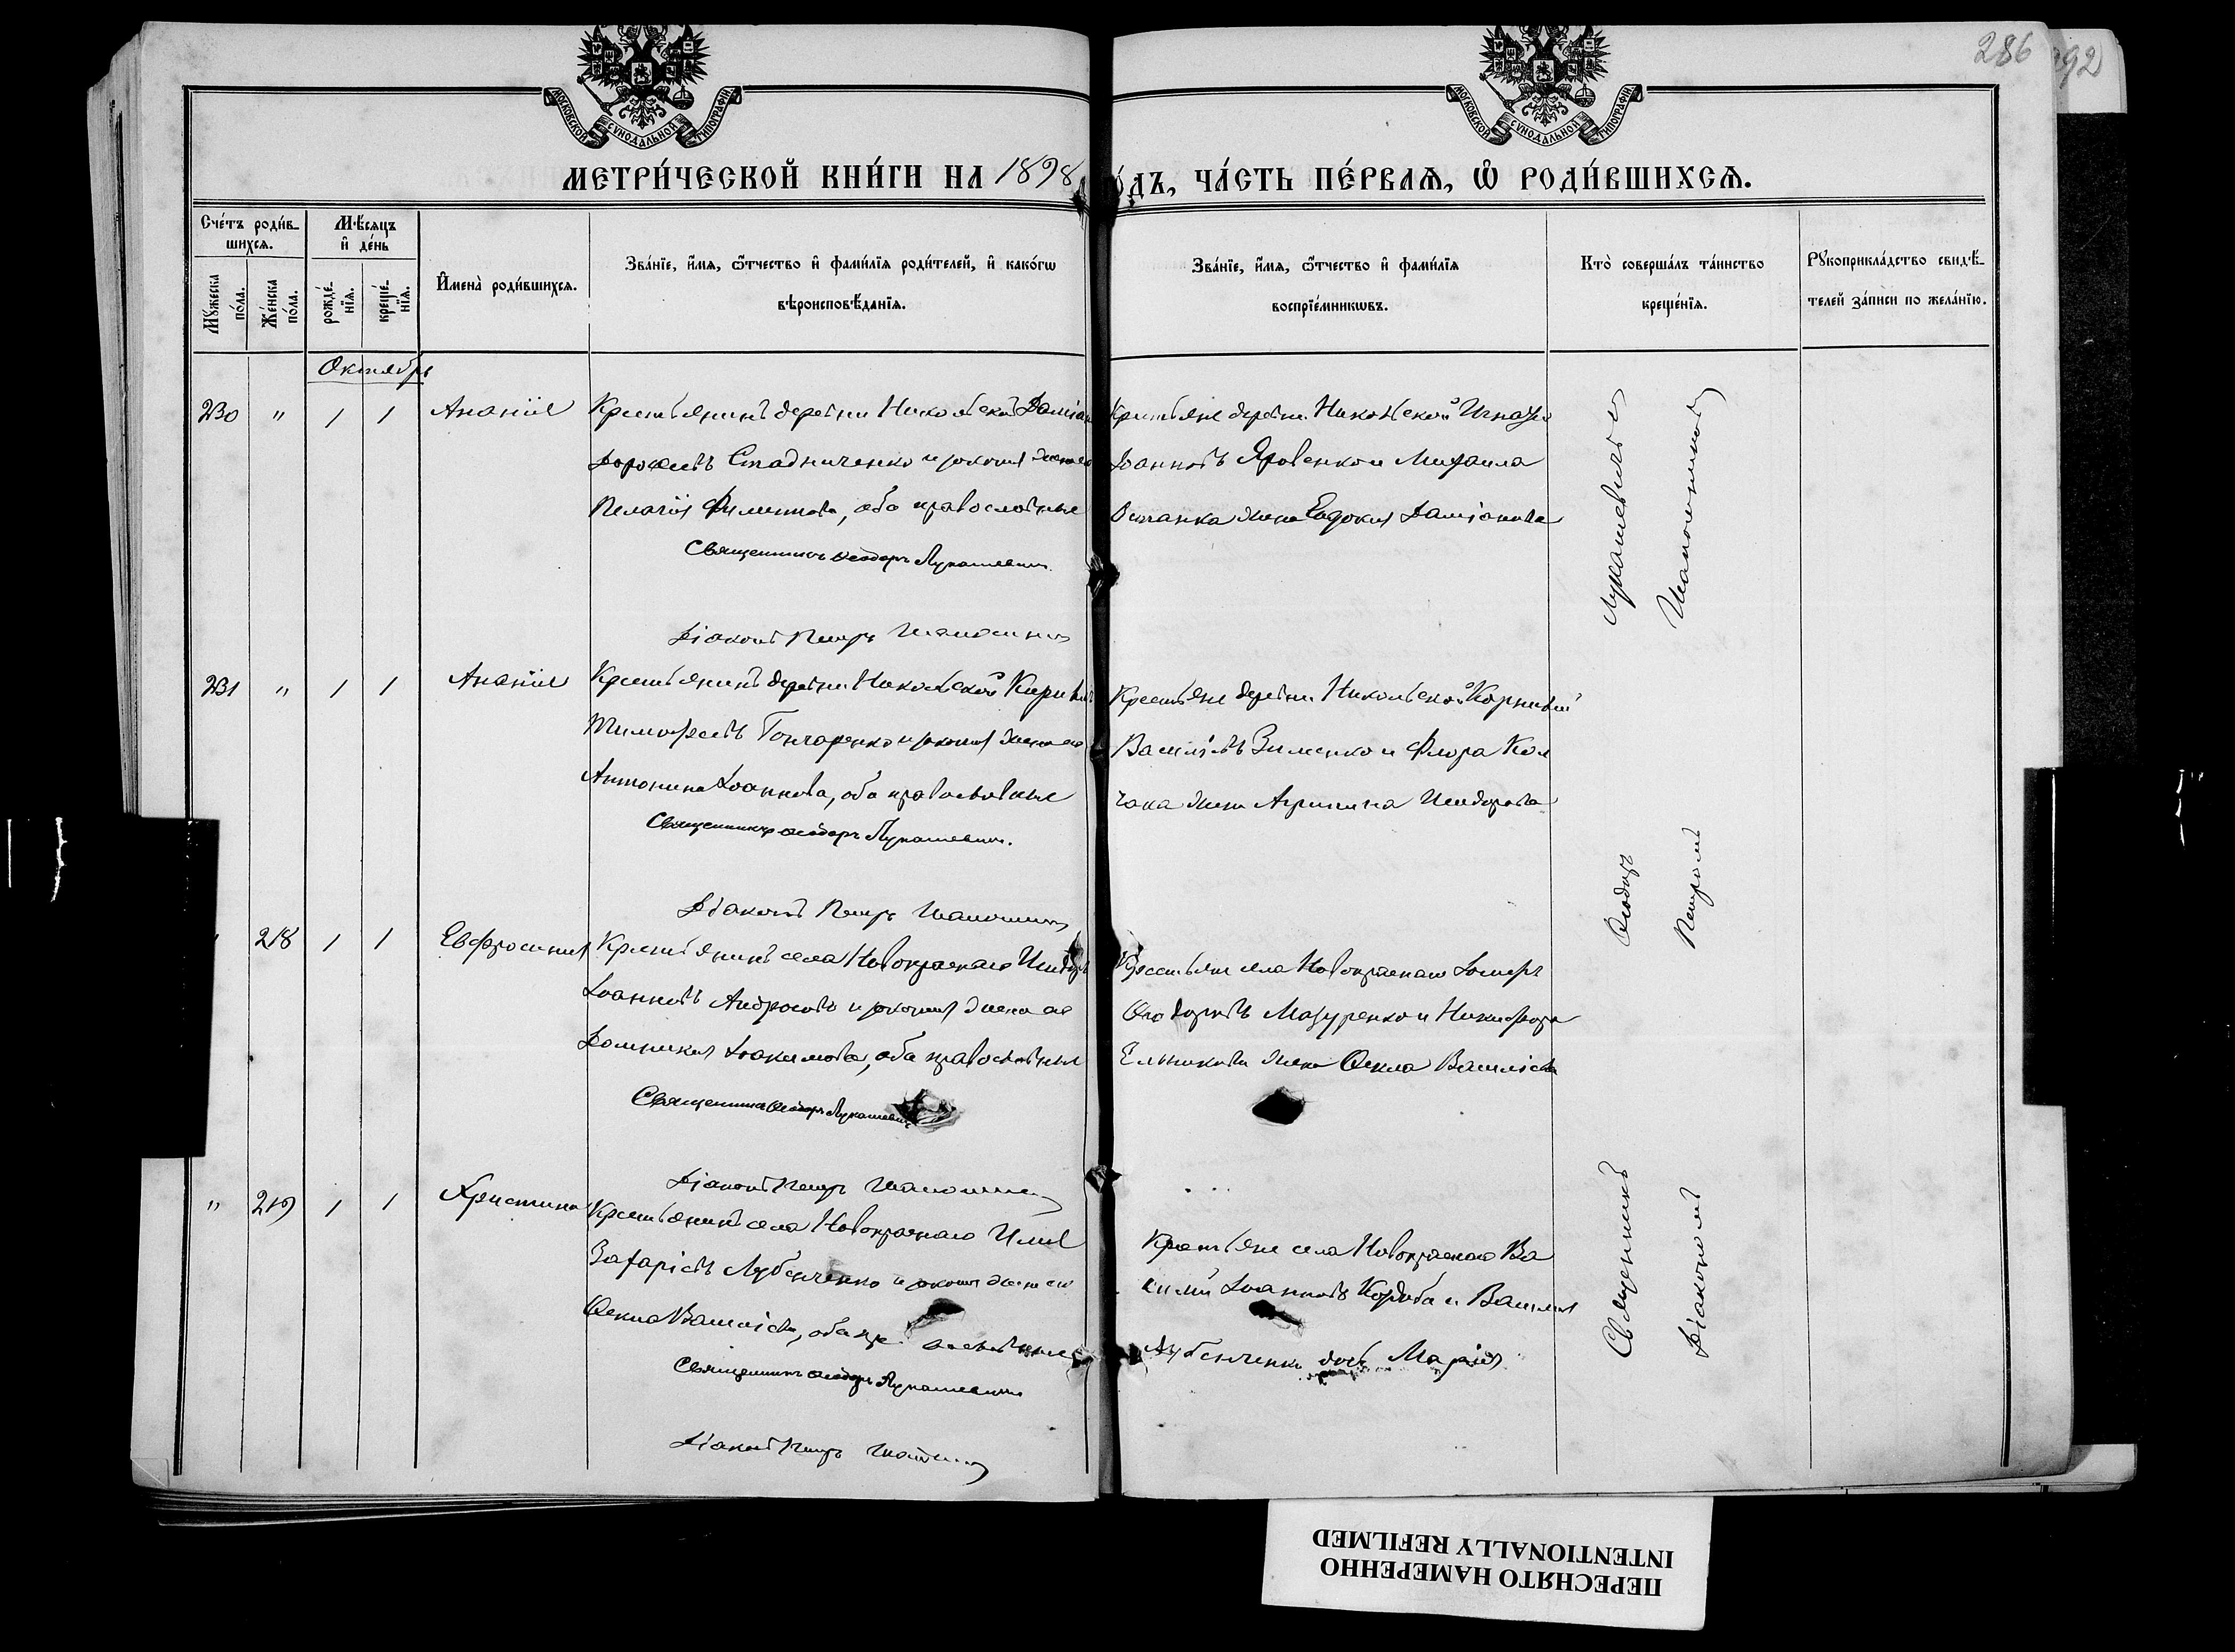 286
92
МОСКОВСКОЙ СУНОДАЛЬНОЙ ТИПОГРАФІИ
МОСКОВСКОЙ СУНОДАЛЬНОЙ ТИПОГРАФІИ
МЕТРИ́ЧЕСКОЙ КНИ́ГИ НА 1898
ДЪ, ЧА́СТЬ ПЕ́РВАѦ, Ѡ҆ РОДИ́ВШИХСѦ.
Сче́тъ роди́в-
шихсѧ.
Мѣ́сяцъ
и҆ де́нь
Мꙋжеска по́ла.
Же́нска по́ла.
рожде́-
нїѧ.
креще́-
нїѧ.
И҆мена̀ роди́вшихсѧ.
Зва́нїе, и҆́мѧ, ѻ҆́тчество и҆ фами́лїѧ роди́телей, и҆ како́гѡ
вѣроисповѣ́данїѧ.
Зва́нїе, и҆́мѧ, ѻ҆́тчество и҆ фами́лїѧ
воспрїе́мникѡвъ.
Кто̀ соверша́лъ та́инство
креще́нїѧ.
Рꙋкоприкла́дство свидѣ́-
телей за́писи по жела́нїю.
Октябрь
230 " 1 1 Ананія
Крестьянинъ деревни Никольской Даміанъ
Дороѳеевъ Стадниченко и законная жена его
Пелагія Филиппова, оба православные
Священникъ Ѳеодоръ Лукашевичъ.
Діаконъ Петръ
Крестьяне деревни Никольской Игнатій
Іоанновъ Яровенко и Михаила
Остапка жена Евдокія Даміанова
231 " 1 1 Ананія
Крестьянинъ деревни Никольской Кириллъ
Тимофеевъ Гончаренко и законная жена его
Антонина Іоаннова, оба православные
Священникъ Ѳеодоръ Лукашевичъ.
Діаконъ Петръ
Крестьяне деревни Никольской Корнилій
Василіевъ Зименко и Флора Кол
чака жена Агрипина Исидорова
218 1 1 Евфросинія
Крестьянинъ села Новокраснаго Исидоръ
Іоанновъ Андросовъ и законная жена его
Домникія Іоакимова, оба православные
Священникъ Ѳеодоръ Лукашевичъ
Діаконъ Петръ
Крестьяне села Новокраснаго Іосифъ
Ѳеодоровъ Мазуренко и Никифора
Ельникова жена Ѳекла Василіева
" 219 1 1 Христина
Крестьянинъ села Новокраснаго Илія
Захаріевъ Лубенченко и законная жена его
Ѳекла Василіева, оба православные
Священникъ Ѳеодоръ Лукашевичъ
Діаконъ Петръ
Крестьяне села Новокраснаго Ва
силій Іоанновъ Короба и Василія
Лубенченко дочь Марія
Священникъ Ѳеодоръ Лукашевичъ съ
Діакономъ Петромъ
ПЕРЕСНЯТО НАМЕРЕННО
INTENTIONALLY REFILMED